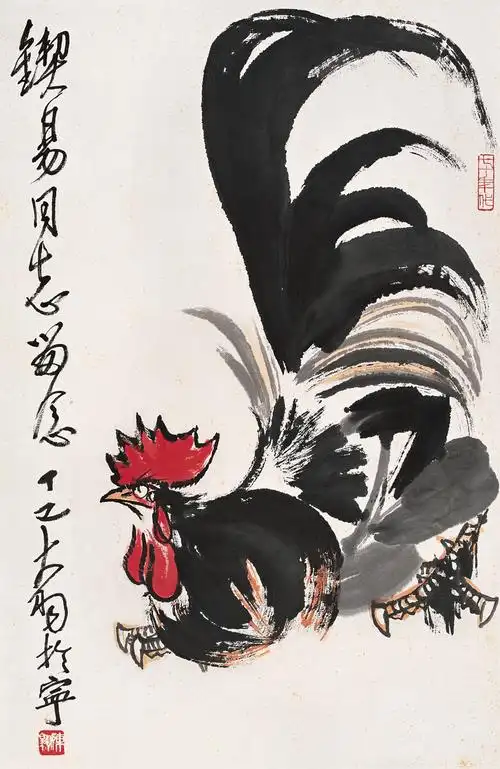 鍥易同志留念 丁巳大羽於寧